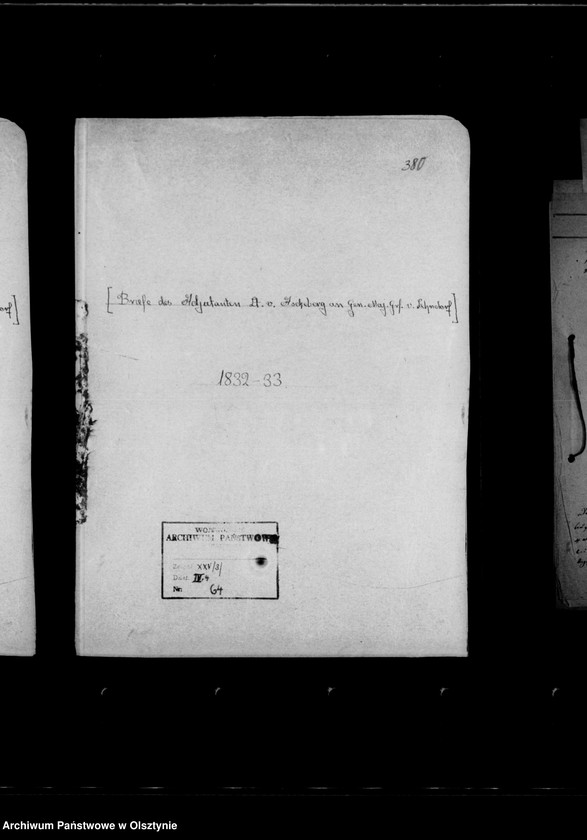 380
[Briefe des Adjutanten A. v. Ascheberg an Gen. Maj. Grf. v. Lehndorf]
1832-33
ARCHIWUM PAŃSTWOWE
XXV/3/
Dział IV.4
Nr. 64
Archiwum Państwowe w Olsztynie